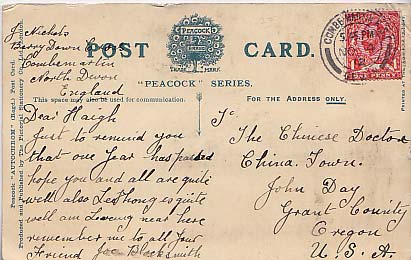 J Nichols
Berry Down Cross
Combemartin
North Devon
England
POST CARD.
PEACOCK
TRADE MARK
"PEACOCK" SERIES.
This space may also be used for communication.
FOR THE ADDRESS ONLY.
Peacock "AUTOCHROM" (Regd.) Post Card.
Produced and Published by The Pictorial Stationery Co., Ltd., London.
Dear Haigh
Just to remind you
that one Year has passed
hope you and all are quite
well also Lee Hong is quite
well am Liveing near here
remember me to all your
Friend Joe Blacksmith
To
The Chinese Doctor
China Town.
John Day
Grant County
Oregon
U.S.A.
COMBEMARTIN
PM
ONE PENNY